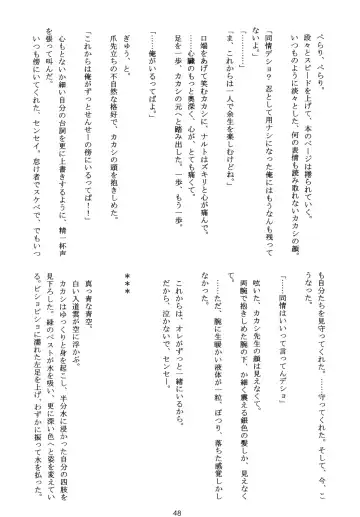 ぺらり、ぺらり。
淡々とスピードを上げて、本のページは捲られていく。
いつものように淡々とした、何の表情も読み取れないカカシの顔。
「同情デショ？　忍として用ナシになった俺にはもうなんも残って
ないよ。」
「………」
「ま、これからは一人で余生を楽しむけどね。」
口端をあげて笑むカカシに、ナルトはズキリと心が痛んで。
……心臓のもっと奥深く、心が、とても痛くて。
足を一歩、カカシの元へと踏み出した。一歩、もう一歩。
「………俺がいるってばよ」
ぎゅう、と。
爪先立ちの不自然な格好で、カカシの頭を抱きしめた。
「これからは俺がずっとせんせーの傍にいるってば！！」
心もとないか細い自分の台詞を更に上書きするように、精一杯声
を張って叫んだ。
いつも傍にいてくれた、センセイ。怠け者でスケベで、でもいつ
も自分たちを見守ってくれた。……守ってくれた。そして、今、こ
うなった。
「……同情はいいって言ってんデショ」
呟いた、カカシ先生の顔は見えなくて。
両腕で抱きしめた腕の下、か細く震える銀色の髪しか、見えなく
なくて。
……ただ、腕に生暖かい液体が一粒、ぽつり、落ちた感覚しかし
なくて。
これからは、オレがずっと一緒にいるから。
だから、泣かないで、センセー。
＊＊＊
真っ青な青空。
白い入道雲が空に浮かぶ。
カカシはゆっくりと身を起こし、半分水に浸かった自分の四肢を
見下ろした。緑のベストが水を吸い、更に深い色へと姿を変えてい
る。ビショビショに濡れた左足を上げ、わずかに振って水を払った。
48